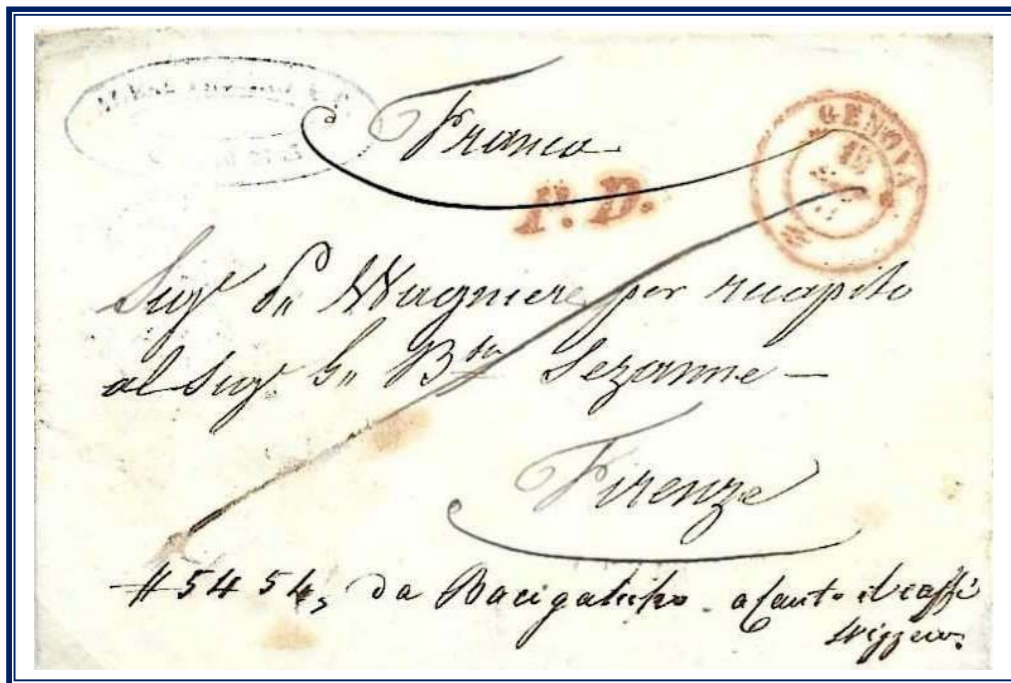 Franca
P. D.
GENOVA
Sigr de Wagniere per recapito
al Sigr G. Bta Sezanne —
Firenze
# 5454, da Bacigalupo accanto il caffè
svizzero.